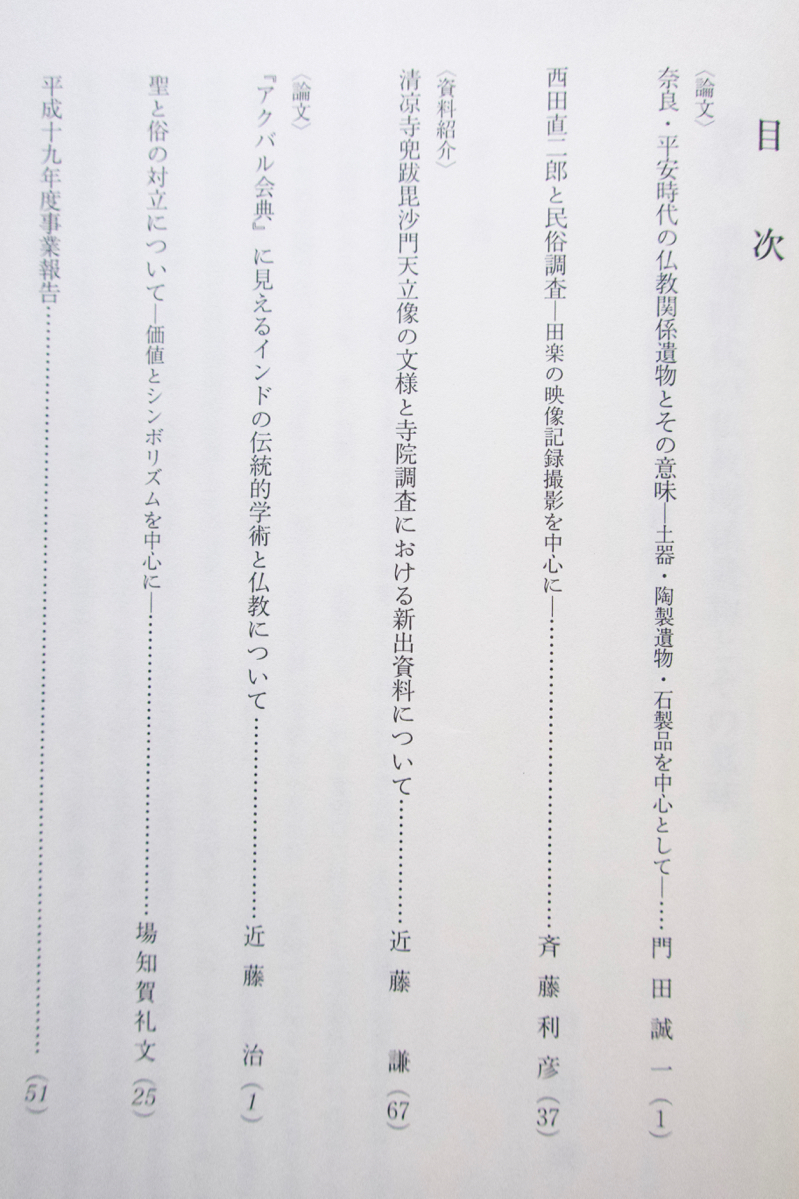 目次
〈論文〉
奈良・平安時代の仏教関係遺物とその意味―土器・陶製遺物・石製品を中心として―……門田誠一(1)
西田直二郎と民俗調査―田楽の映像記録撮影を中心に―……斉藤利彦(37)
〈資料紹介〉
清凉寺兜跋毘沙門天立像の文様と寺院調査における新出資料について……近藤謙(67)
〈論文〉
『アクバル会典』に見えるインドの伝統的学術と仏教について……近藤治(1)
聖と俗の対立について―価値とシンボリズムを中心に―……場知賀礼文(25)
平成十九年度事業報告……(51)